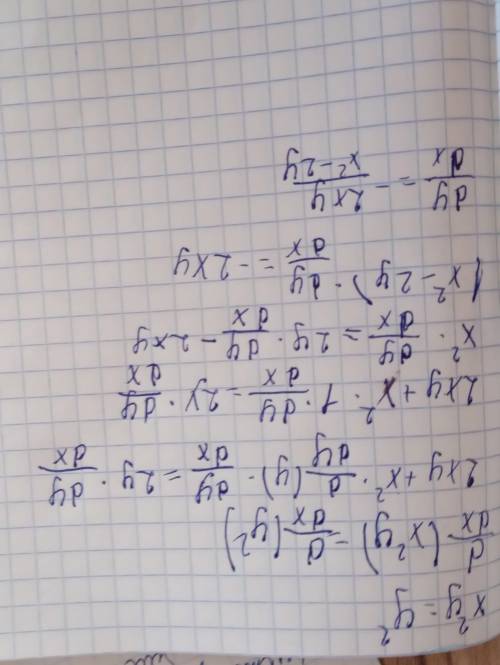 x²y = y²
d/dx · (x²y) = d/dx (y²)
2xy + x² · d/dy (y) · dy/dx = 2y · dy/dx
2xy + x² · 1 · dy/dx = 2y · dy/dx
x² · dy/dx = 2y · dy/dx - 2xy
(x² - 2y) · dy/dx = - 2xy
dy/dx = - 2xy/x² - 2y